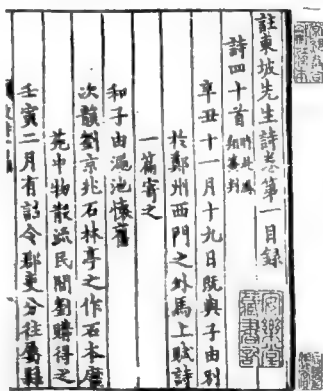 註東坡先生詩卷第一目錄
詩四十首
辛丑十一月十九日既與子由別
於鄭州西門之外馬上賦詩
一篇寄之
和子由澠池懷舊
次韻劉京兆石林亭之作石本唐
苑中物散流民間劉購得之
壬寅二月有詔令郡吏分往屬縣